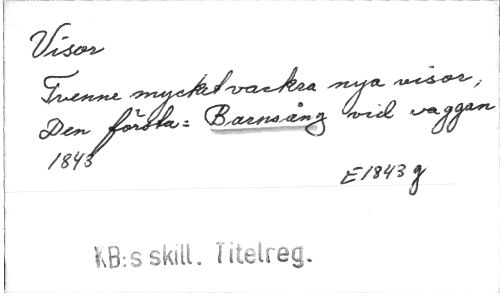 Visor
Tvenne mycket vackra nya visor,
Den första: Barnsång vid vaggan
1843
E1843 g
KB:s skill. Titelreg.